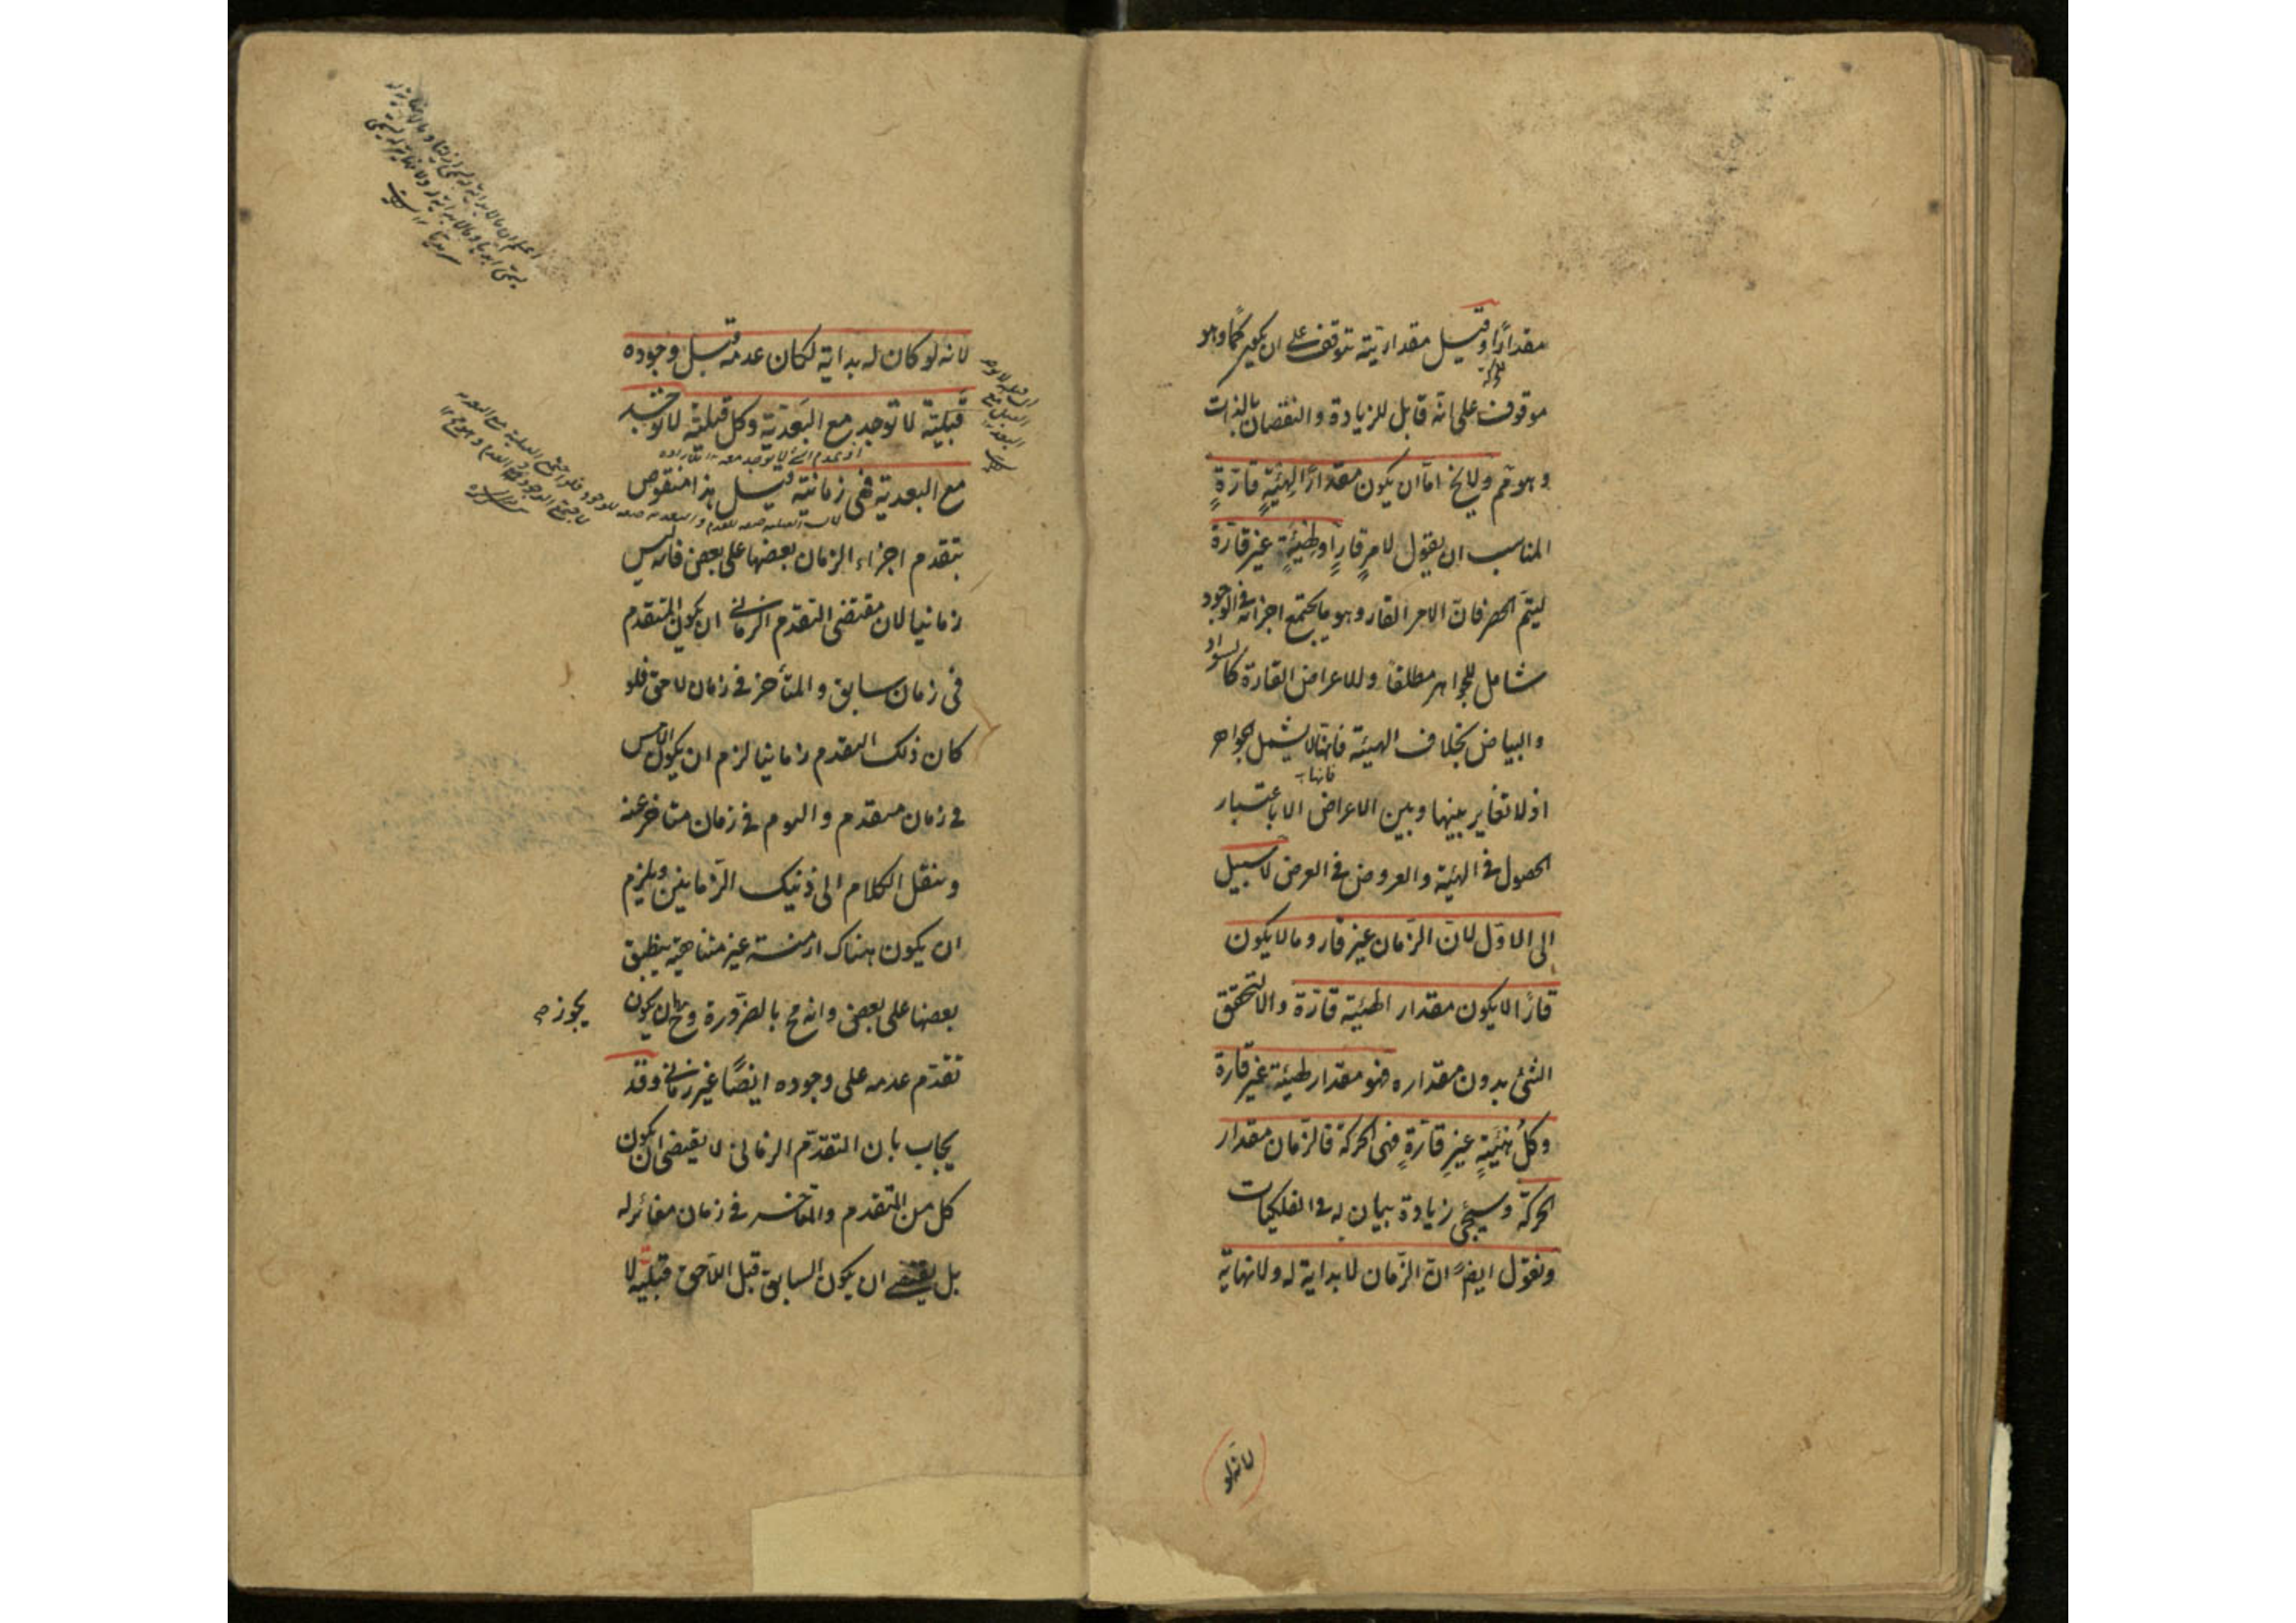 مقدارًا وقيل مقداريته تتوقف على ان يكون كمّا وهو
موقوف على انّه قابل للزيادة والنقصان بالذات
وهو مم ولا يخ امّا ان يكون مقدارًا لهيئةٍ قارّةٍ
المناسب ان يقول لامرٍ قارٍ او لهيئةٍ غير قارّة
ليتمّ الحصر فانّ الامر القار وهو ما يجتمع اجزائه فى الوجود
شامل للجواهر مطلقا وللاعراض القارة كالسواد
والبياض بخلاف الهيئة فانها لا يشمل الجواهر
اذ لا تغاير بينها وبين الاعراض الا باعتبار
الحصول فى الهيئة والعروض فى العرض لا سبيل
الى الاوّل لانّ الزّمان غير قار وما لا يكون
قارًا لا يكون مقدار الهيئة قارّة والا لتحقق
الشئ بدون مقداره فهو مقدار لهيئة غير قارة
وكلّ هيئةٍ غيرِ قارّةٍ فهى الحركة فالزّمان مقدار
الحركة وسيجئ زيادة بيان له فى الفلكيات
ونقول ايضًا انّ الزّمان لا بداية له ولا نهاية
لانه لو
لانه لو كان له بداية لكان عدمه قبل وجوده
قبليّة لا توجد مع البَعْديّة وكل قبليّة لا توجد
مع البعدية فهى زمانيّة قيل هذا منقوض
بتقدم اجزاء الزمان بعضها على بعض فانه ليس
زمانيا لان مقتضى التقدم الزمانى ان يكون المتقدم
فى زمان سابق والمتأخر فى زمان لاحق فلو
كان ذلك التقدم زمانيا لزم ان يكون الامس
فى زمان متقدم واليوم فى زمان متاخر عنه
وننقل الكلام الى ذينك الزّمانين ويلزم
ان يكون هناك ازمنة غير متناهية ينطبق
بعضها على بعض وانه مح بالضّرورة وح ان يكون
يجوز صح
تقدّم عدمه على وجوده ايضًا غير زمانى وقد
يجاب بان التقدّم الزمانى لا يقتضى ان يكون
كل من المتقدم والمتاخر فى زمان مغائر له
بل يقتضى ان يكون السابق قبل اللاحق قبليّة لا